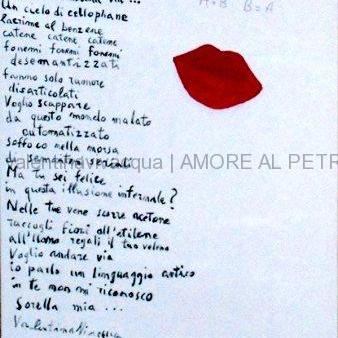 Un cielo di cellophane
lacrime al benzene
catene catene catene
fonemi fonemi fonemi
desemantizzati
fanno solo rumore
disarticolati
Voglio scappare
da questo mondo malato
automatizzato
soffoco nella morsa
Ma tu sei felice
in questa illusione infernale?
Nelle tue vene scorre acetone
raccogli fiori all'etilene
all'uomo regali il tuo veleno
Voglio andare via
io parlo un linguaggio antico
in te non mi riconosco
Sorella mia ...
A=B B=A
acqua | AMORE AL PETR